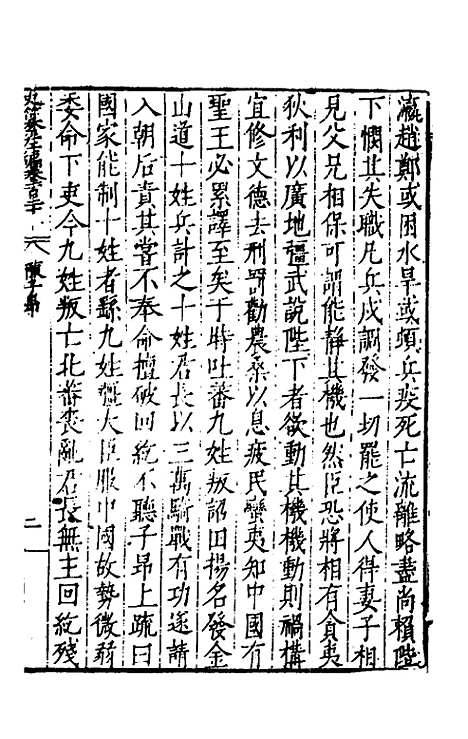 瀛趙鄭或困水旱或頓兵疫死亡流離略盡尚賴陛
下憫其失職凡兵戍調發一切罷之使人得妻子相
見父兄相保可謂能靜其機也然臣恐將相有貪夷
狄利以廣地彊武說陛下者欲動其機機動則禍構
宜修文德去刑罰勸農桑以息疲民蠻夷知中國有
聖王必累譯至矣于時吐蕃九姓叛詔田揚名發金
山道十姓兵計之十姓君長以三萬騎戰有功遂請
入朝后責其嘗不奉命擅破回紇不聽子昂上疏曰
國家能制十姓者繇九姓彊大臣服中國故勢微弱
委命下吏今九姓叛亡北蕃喪亂君長無主回紇殘
史纂左編卷 陳子昂 二